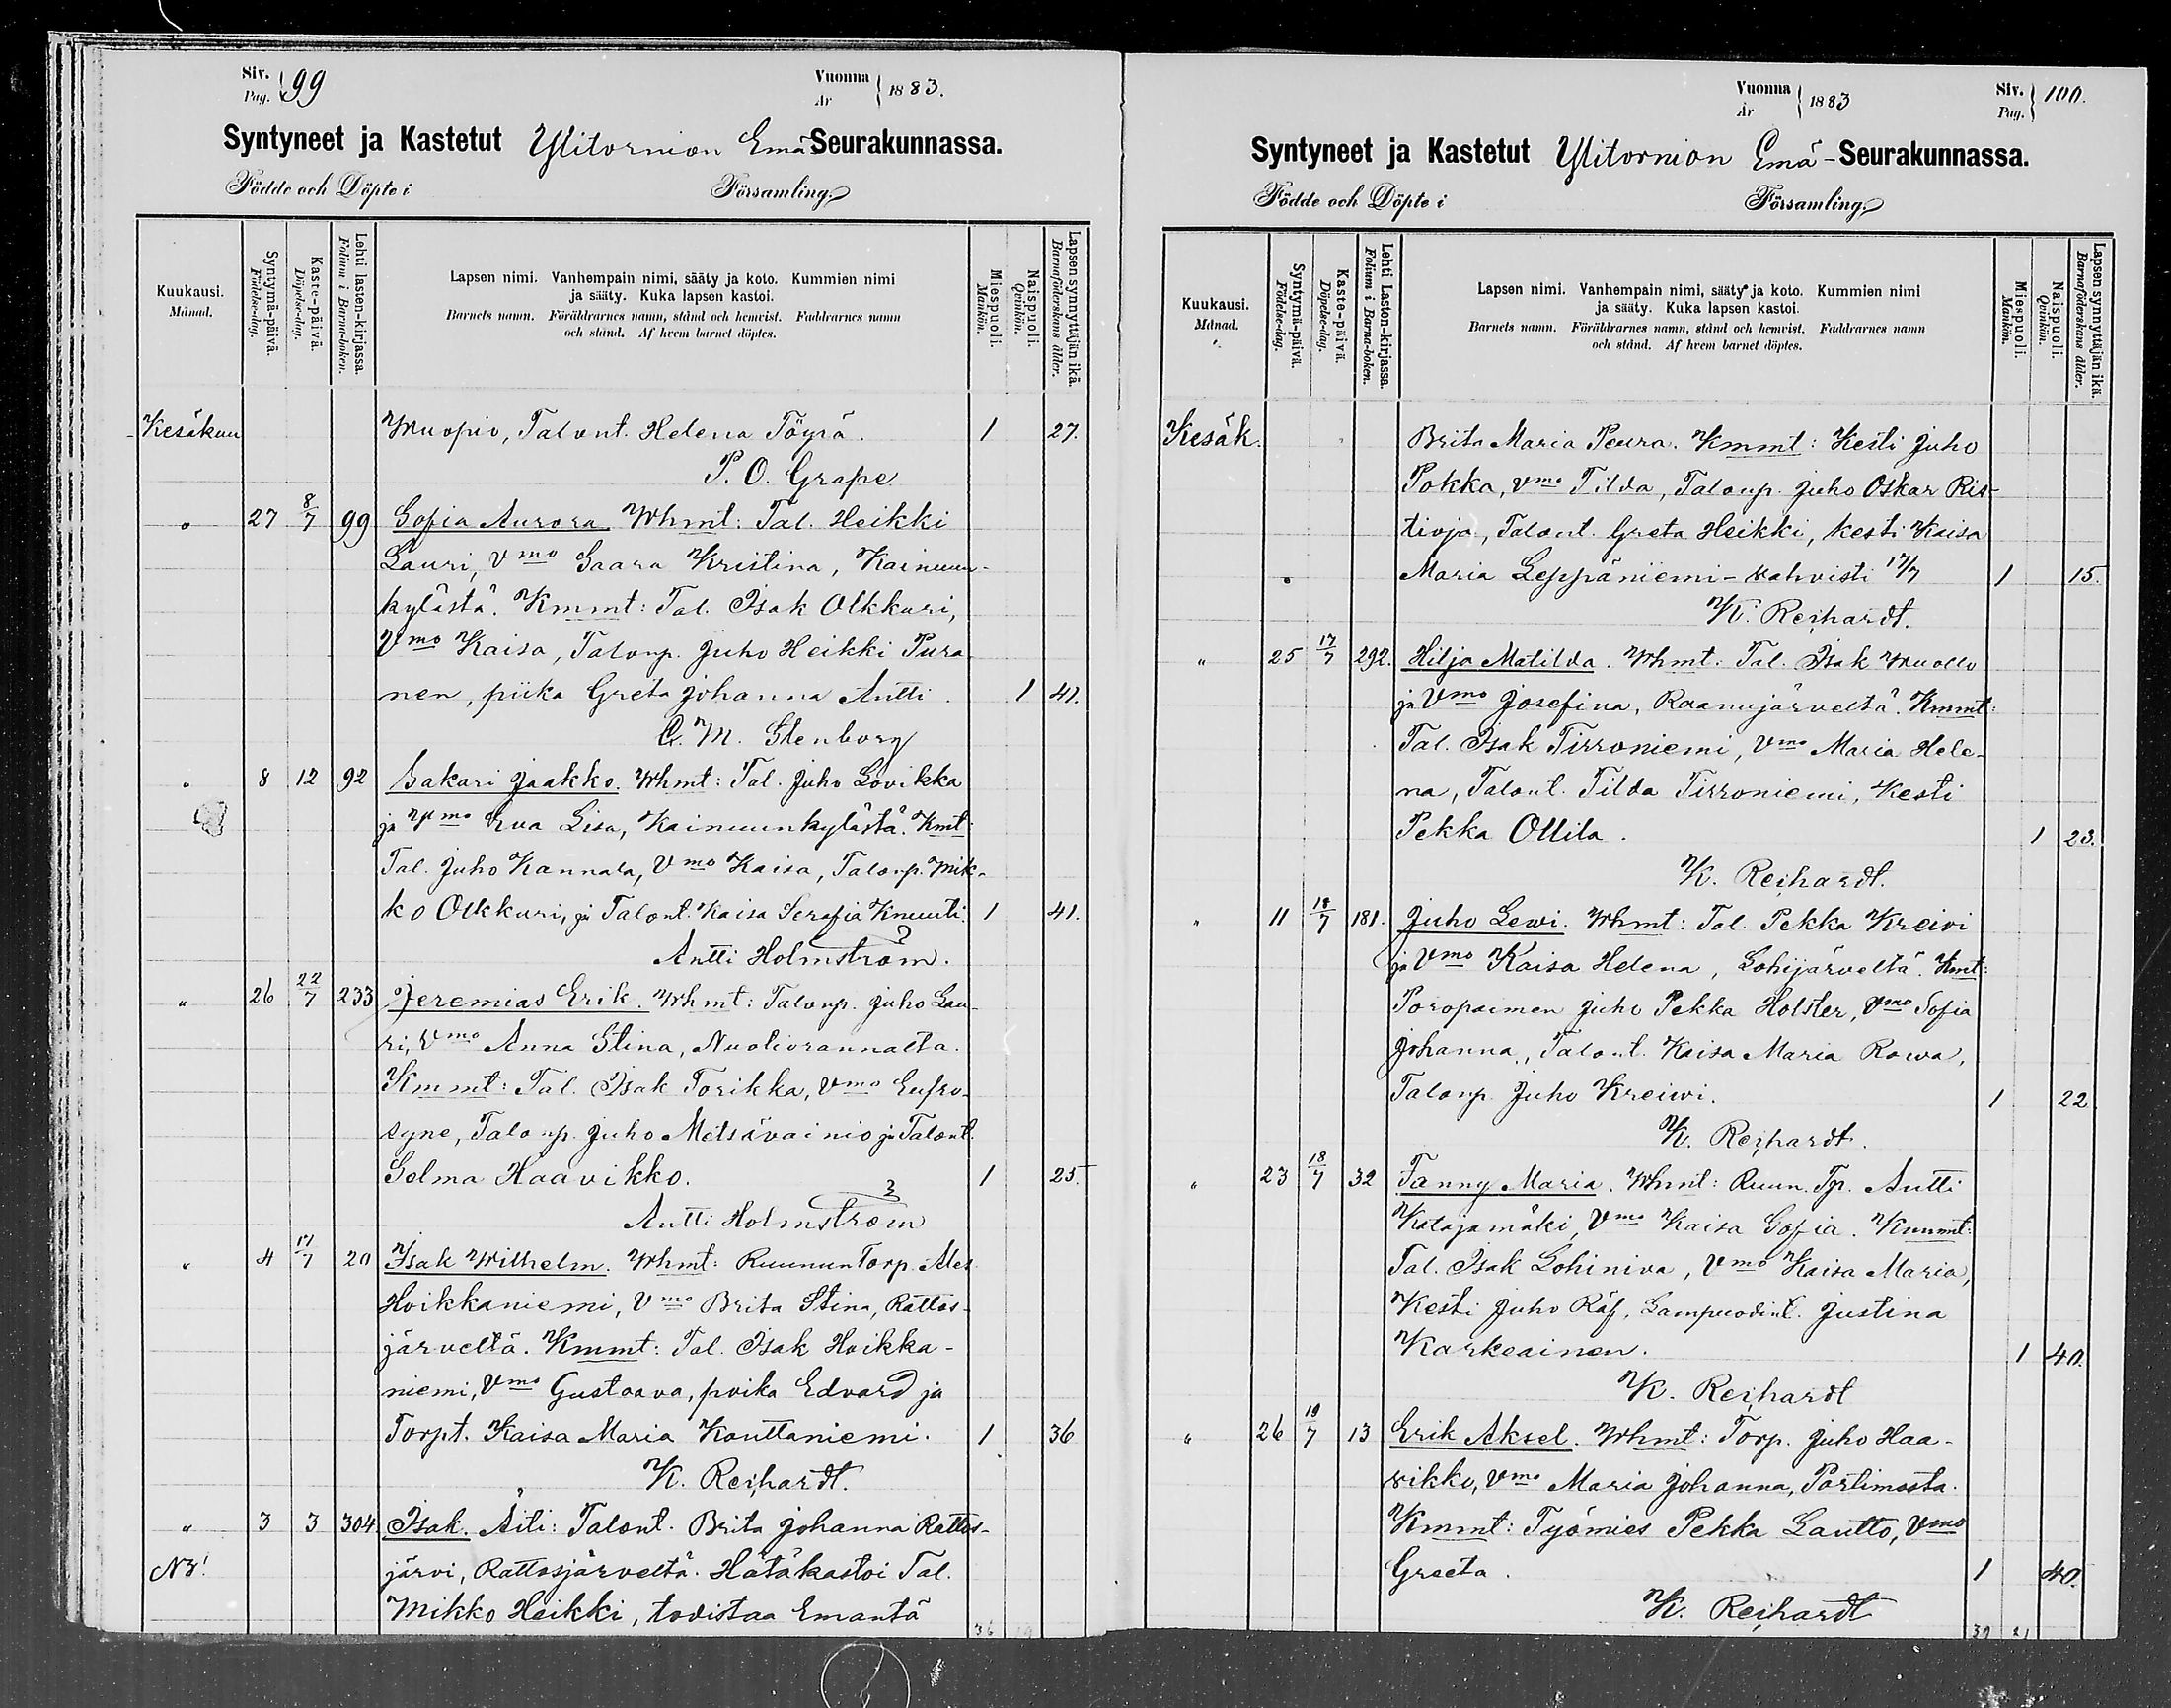 Siv. Pag. 99
Vuonna År 1883.
Syntyneet ja Kastetut Ylitornion Emä Seurakunnassa.
Födde och Döpte i Församling.
Kuukausi. Månad.
Syntymä-päivä. Födelse-dag.
Kaste-päivä. Döpelse-dag.
Lehti lasten-kirjassa. Folium i Barna-boken.
Lapsen nimi. Vanhempain nimi, sääty ja koto. Kummien nimi
ja sääty. Kuka lapsen kastoi.
Barnets namn. Föräldrarnes namn, stånd och hemvist. Faddrarnes namn
och stånd. Af hvem barnet döptes.
Miespuoli. Mankön.
Naispuoli. Qvinkön.
Lapsen synnyttäjän ikä. Barnaföderskans ålder.
Kesäkuu Muopio, Talont. Helena Töyrä. 1 27.
P. O. Grape
" 27 8/7 99 Sofia Aurora Whmt: Tal. Heikki
Lauri, Vmo Saara Kristina, Kainuun-
kylästä. Kmmt: Tal. Isak Olkkuri,
Vmo Kaisa, Talonp. Juho Heikki Pura
nen, piika Greta Johanna Antti. 1 41.
C. M. Stenborg
" 8 12 92 Sakari Jaakko. Whmt: Tal. Juho Lovikka
ja Vmo Eva Lisa, Kainuunkylästä. Kmt:
Tal. Juho Kannala, Vmo Kaisa, Talonp. Mik-
ko Olkkuri, ja Talont. Kaisa Serafia Knuuti. 1 41.
Antti Holmström.
" 26 22/7 233 Jeremias Erik. Whmt: Talonp. Juho Lau-
ri, Vmo Anna Stina, Nuoliorannalta.
Kmmt: Tal. Isak Torikka, Vmo Eufro-
syne, Talonp. Juho Metsävainio ja Talont.
Selma Haavikko. 1 25.
Antti Holmström
" 4 17/7 20 Isak Wilhelm. Whmt: Ruunun Torp. Alex
Hoikkaniemi, Vmo Brita Stina, Rattos-
järveltä. Kmmt: Tal. Isak Hoikka-
niemi, Vmo Gustaava, poika Edvard ja
Torpt. Kaisa Maria Kouttaniemi. 1 36
K. Reihardt.
" 3 3 304 Isak. Äiti: Talont. Brita Johanna Rattos-
järvi, Rattosjärveltä. Hätäkastoi Tal.
Mikko Heikki, todistaa Emäntä
36
Vuonna År 1883
Siv. Pag. 100.
Syntyneet ja Kastetut Ylitornion Emä-Seurakunnassa.
Födde och Döpte i Församling.
Kuukausi. Månad.
Syntymä-päivä. Födelse-dag.
Kaste-päivä. Döpelse-dag.
Lehti Lasten-kirjassa. Folium i Barna-boken.
Lapsen nimi. Vanhempain nimi, sääty ja koto. Kummien nimi
ja sääty. Kuka lapsen kastoi.
Barnets namn. Föräldrarnes namn, stånd och hemvist. Faddrarnes namn
och stånd. Af hvem barnet döptes.
Miespuoli. Mankön.
Naispuoli. Qvinkön.
Lapsen synnyttäjän ikä. Barnaföderskans ålder.
Kesäk. Brita Maria Peura. Kmmt: Kesti Juho
Pokka, Vmo Tilda, Talonp. Juho Oskar Ris-
tioja, Talont. Greta Heikki, kesti Kaisa
Maria Leppäniemi - vahvisti 17/7 1 15.
K. Reihardt.
" 25 17/7 292. Hilja Matilda. Whmt: Tal. Isak Muollo
ja Vmo Josefina, Raanujärveltä. Kmmt:
Tal. Isak Tirroniemi, Vmo Maria Hele-
na, Talont. Tilda Tirroniemi, Kesti
Pekka Ollila. 1 23.
K. Reihardt.
" 11 18/7 181. Juho Lewi. Whmt: Tal. Pekka Kreivi
ja Vmo Kaisa Helena, Lohijärveltä. Kmt:
Poropaimen Juho Pekka Holster, Vmo Sofia
Johanna, Talont. Kaisa Maria Rowa,
Talonp. Juho Kreiwi. 1 22
K. Reihardt.
" 23 18/7 32 Fanny Maria. Whmt: Ruun. Tp. Antti
Katajamäki, Vmo Kaisa Sofia. Kmmt:
Tal. Isak Lohiniva, Vmo Kaisa Maria,
Kesti Juho Räf, Lampuodint. Justina
Karkeainen. 1 40.
K. Reihardt
" 26 19/7 13 Erik Aksel. Whmt: Torp. Juho Haa-
vikko, Vmo Maria Johanna, Portimosta.
Kmmt: Työmies Pekka Lautto, Vmo
Greeta. 1 40.
K. Reihardt